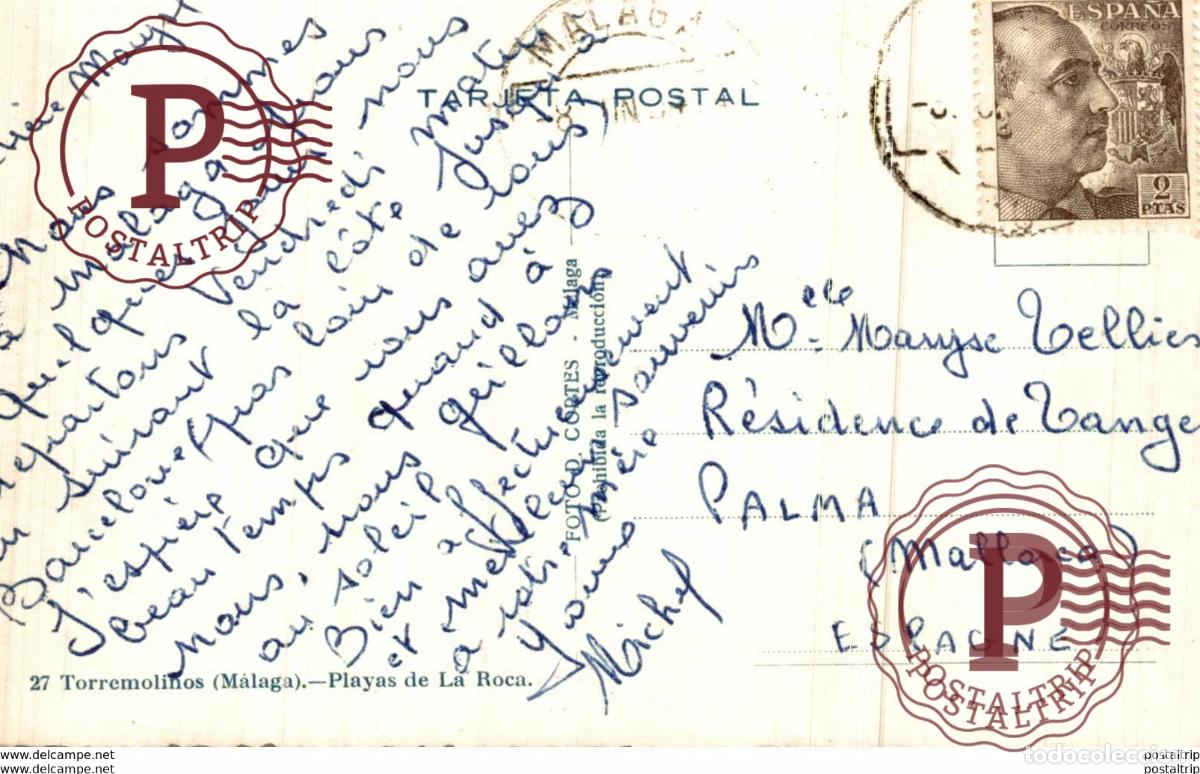 chère Maryse
Nous sommes
à malaga depuis
quelques jours nous
repartons Vendredi matin
en suivant la côte jusqu'à
Barcelone (pas loin de vous)
J'espère que vous avez
beau temps quand à
nous, nous grillons
au soleil
Bien affectueusement
et meilleurs souvenirs
à votre mère
Yvons
Michel
MALAGA
TARJETA POSTAL
ESPAÑA
CORREOS
2
PTAS
FOTO D. CORTES - Málaga
(Prohibida la reproducción)
Melle Maryse Tellier
Résidence de Tange
PALMA
(Mallorca)
ESPAGNE
27 Torremolinos (Málaga).—Playas de La Roca.
P
POSTALTRIP
P
POSTALTRIP
POSTALTRIP
todocoleccion
www.delcampe.net
www.delcampe.net
postaltrip
postaltrip